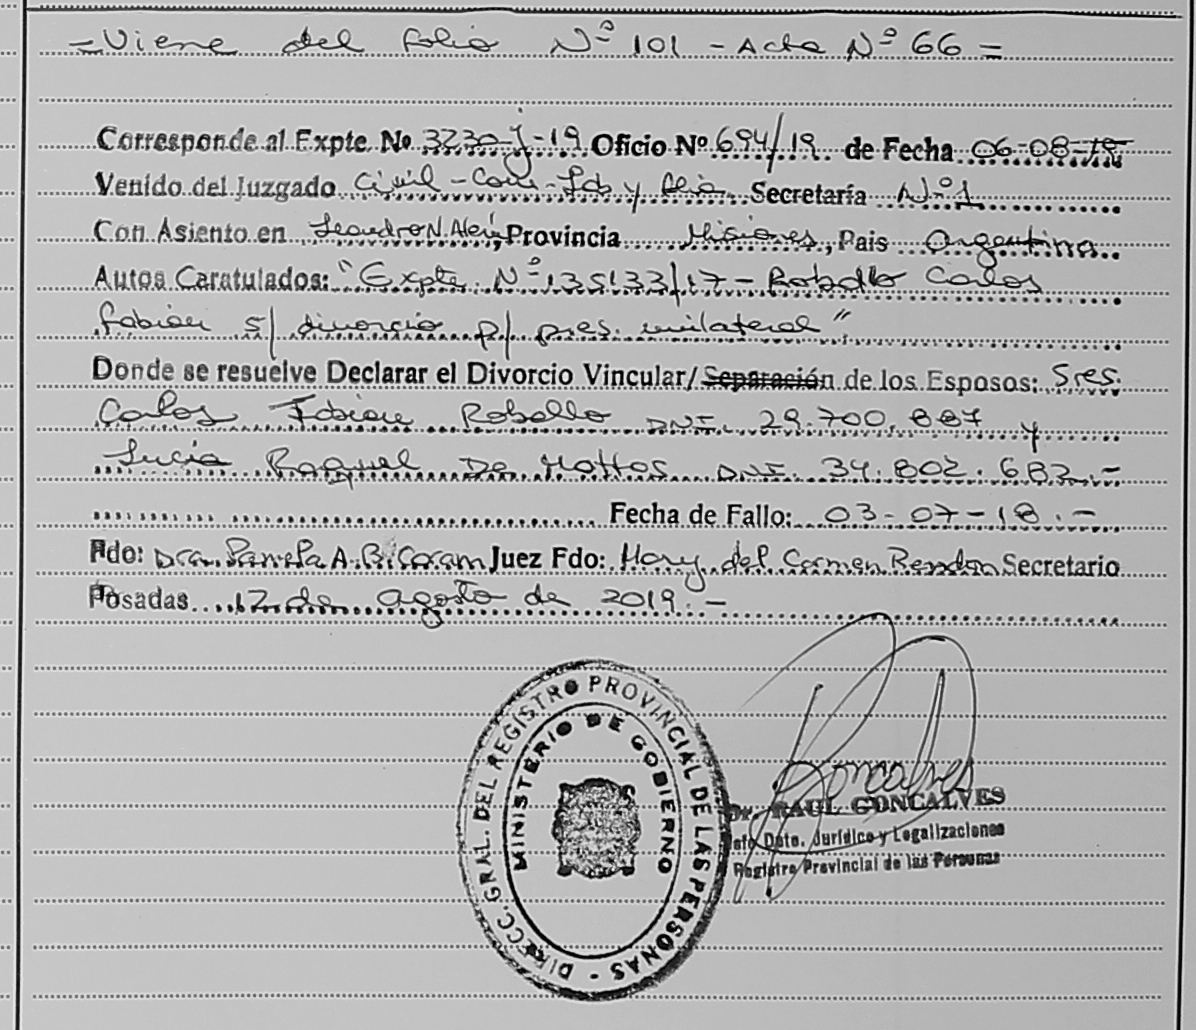 =Viene del folio Nº 101 - Acta Nº 66=
Corresponde al Expte Nº 3230-J-19 Oficio Nº 694/19 de Fecha 06-08-19
Venido del Juzgado Civil - Com - Lab y flia Secretaría Nº1
Con Asiento en Leandro N. Alem, Provincia Misiones, Pais Argentina
Autos Caratulados: "Expte Nº 135133/17 - Robollo Carlos
Fabian s/ divorcio p/ pres. unilateral"
Donde se resuelve Declarar el Divorcio Vincular/Separación de los Esposos: Sres.
Carlos Fabian Robollo DNI. 29.700.887 y
Lucia Raquel De Mattos DNI. 34.802.682.-
Fecha de Fallo: 03-07-18.-
Fdo: Dra. Pamela A. B. Juez Fdo: Mary del Carmen Rendon Secretario
Posadas 12 de agosto de 2019.-
DIRECC. GRAL. DEL REGISTRO PROVINCIAL DE LAS PERSONAS -
MINISTERIO DE GOBIERNO
Goncalves
Dr. RAUL GONCALVES
Jefe Dpto. Jurídico y Legalizaciones
Registro Provincial de las Personas